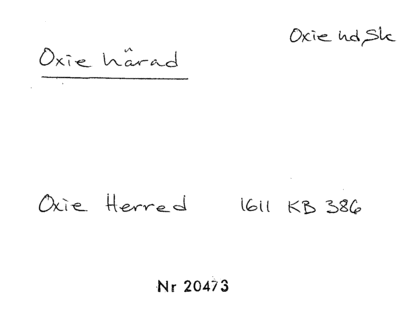 Oxie hd, Sk
Oxie härad
Oxie Herred 1611 KB 386
Nr 20473